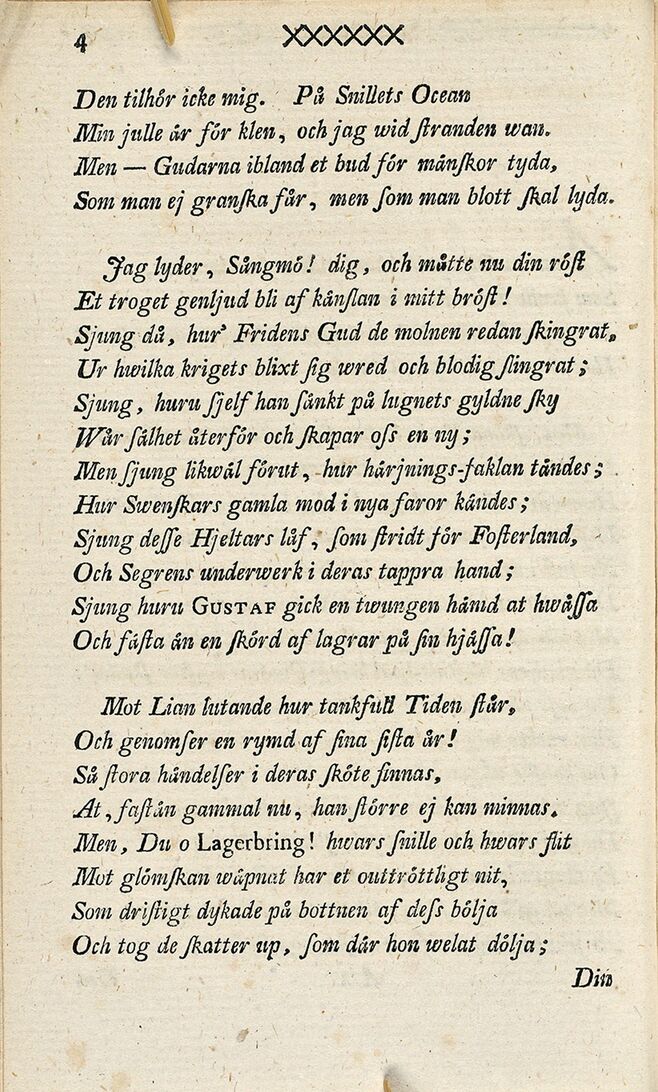 4 XXXXXX
Den tilhör icke mig. På Snillets Ocean
Min julle är för klen, och jag wid ſtranden wan.
Men — Gudarna ibland et bud för mänſkor tyda,
Som man ej granſka får, men ſom man blott ſkal lyda.
Jag lyder, Sångmö! dig, och måtte nu din röſt
Et troget genljud bli af känſlan i mitt bröſt!
Sjung då, hur' Fridens Gud de molnen redan ſkingrat,
Ur hwilka krigets blixt ſig wred och blodig ſlingrat;
Sjung, huru ſjelf han ſänkt på lugnets gyldne ſky
Wår ſälhet återför och ſkapar oſs en ny;
Men ſjung likwäl förut, hur härjnings-faklan tändes;
Hur Swenſkars gamla mod i nya faror kändes;
Sjung deſſe Hjeltars låf, ſom ſtridt för Foſterland,
Och Segrens underwerk i deras tappra hand;
Sjung huru GUSTAF gick en twungen hämd at hwäſſa
Och fäſta än en ſkörd af lagrar på ſin hjäſſa!
Mot Lian lutande hur tankfull Tiden ſtår,
Och genomſer en rymd af ſina ſiſta år!
Så ſtora händelſer i deras ſköte finnas,
At, faſtän gammal nu, han ſtörre ej kan minnas.
Men, Du o Lagerbring! hwars ſnille och hwars flit
Mot glömſkan wäpnat har et outtröttligt nit,
Som driſtigt dykade på bottnen af deſs bölja
Och tog de ſkatter up, ſom där hon welat dölja;
Din